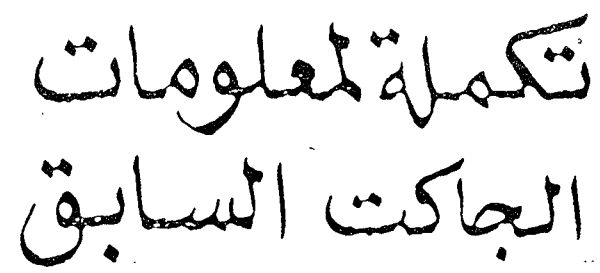 تكملة لمعلومات
الجاكت السابق